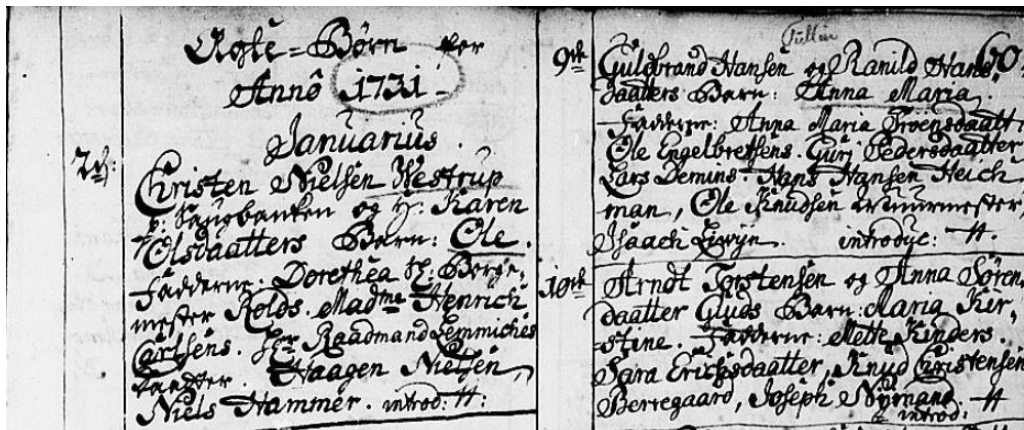 Ægte=Børn for
Annô 1731 -
Januarius.
Christen Nielsen Westrup
Saugbanken og H: Karen
Olsdaatters Barn: Ole.
Fadderne: Dorethea Sl: Borge,
mester Rolds. Madme Henrich
Carlsens. Hr Raadmand Lemmiches
Haagen Nielsen,
Niels Hammer. introd: H:
9de
Guldbrand Hansen og Ranild Hans
daatters Barn: Anna Maria.
Fadderne: Anna Maria
Ole Engelbretsens. Guri Pedersdaatter
Lars Demins. Hans Hansen Heich
man, Ole Knudsen Muurmester,
Isaach introduc: H.
10de
Arndt Torstensen og Anna Sören
daatter Gluds Barn: Maria Kir,
stine. Fadderne: Mette
Sara Erichsdaatter, Knud Christensen
Berregaard, Joseph Nymand. H
introd:
60.